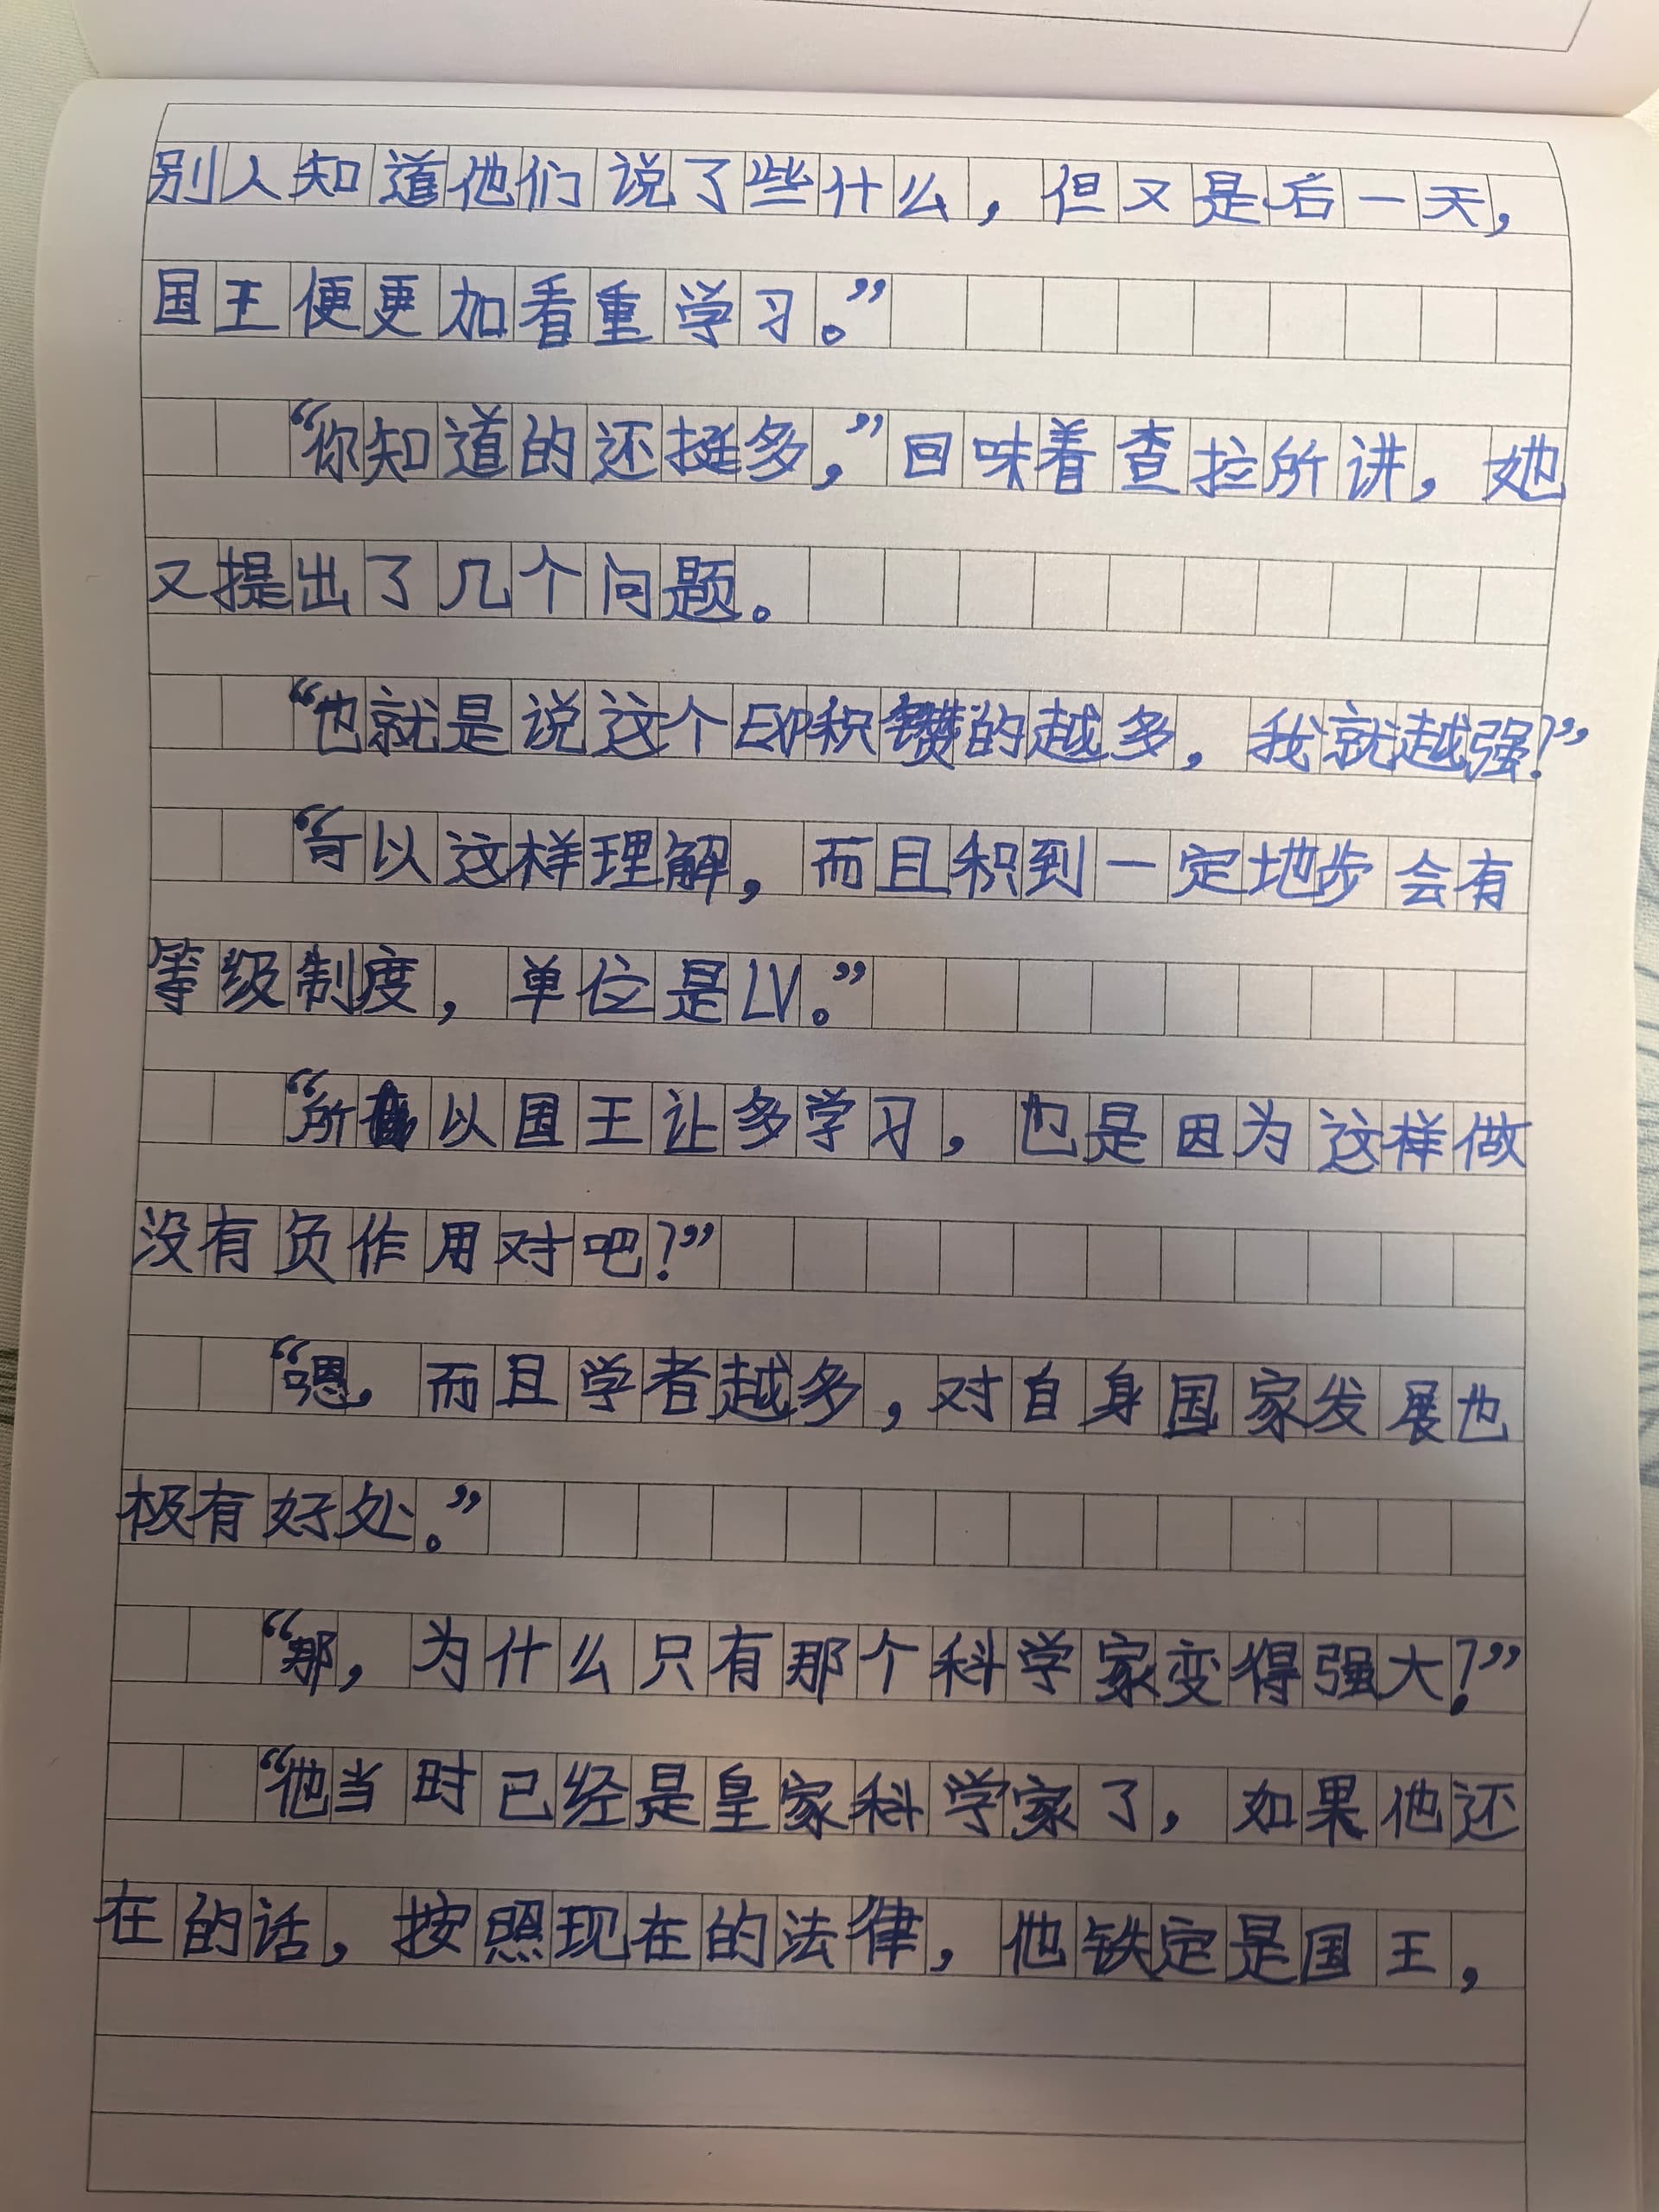 别人知道他们说了些什么，但又是后一天，
国王便更加看重学习。”
“你知道的还挺多，”回味着查拉所讲，她
又提出了几个问题。
“也就是说这个EXP积攒的越多，我就越强？”
“可以这样理解，而且积到一定地步会有
等级制度，单位是LV。”
“所以国王让多学习，也是因为这样做
没有负作用对吧？”
“嗯，而且学者越多，对自身国家发展也
极有好处。”
“那，为什么只有那个科学家变得强大？”
“他当时已经是皇家科学家了，如果他还
在的话，按照现在的法律，他铁定是国王，